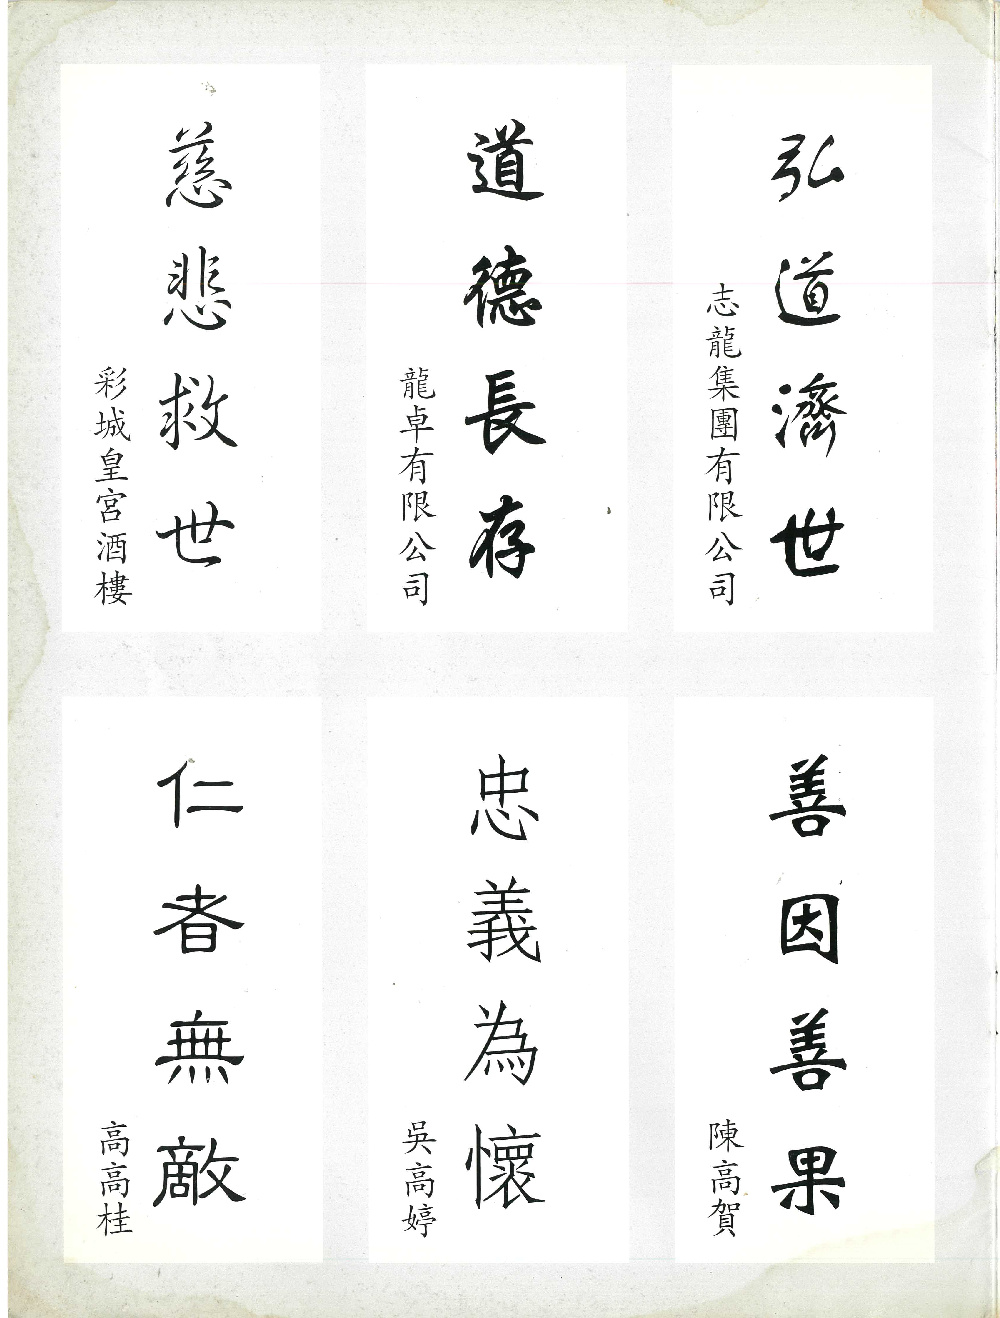 弘道濟世
志龍集團有限公司
道德長存
龍卓有限公司
慈悲救世
彩城皇宮酒樓
善因善果
陳高賀
忠義為懷
吳高婷
仁者無敵
高高桂